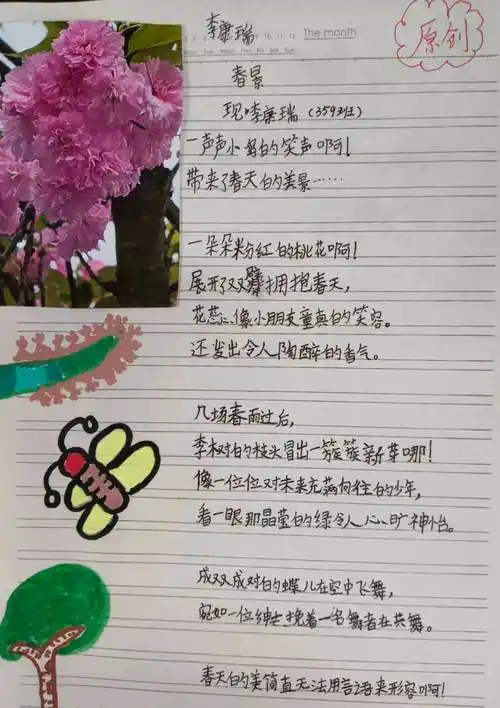 李康瑞
The month
原创
春景
现·李康瑞（359班）
一声声小鸟的笑声啊！
带来了春天的美景……
一朵朵粉红的桃花啊！
展开了双臂拥抱春天，
花蕊像小朋友童真的笑容。
还发出令人陶醉的香气。
几场春雨过后，
李树的枝头冒出一簇簇新芽哪！
像一位位对未来充满向往的少年，
看一眼那晶莹的绿令人心旷神怡。
成双成对的蝶儿在空中飞舞，
宛如一位绅士挽着一名舞者在共舞。
春天的美简直无法用言语来形容啊！